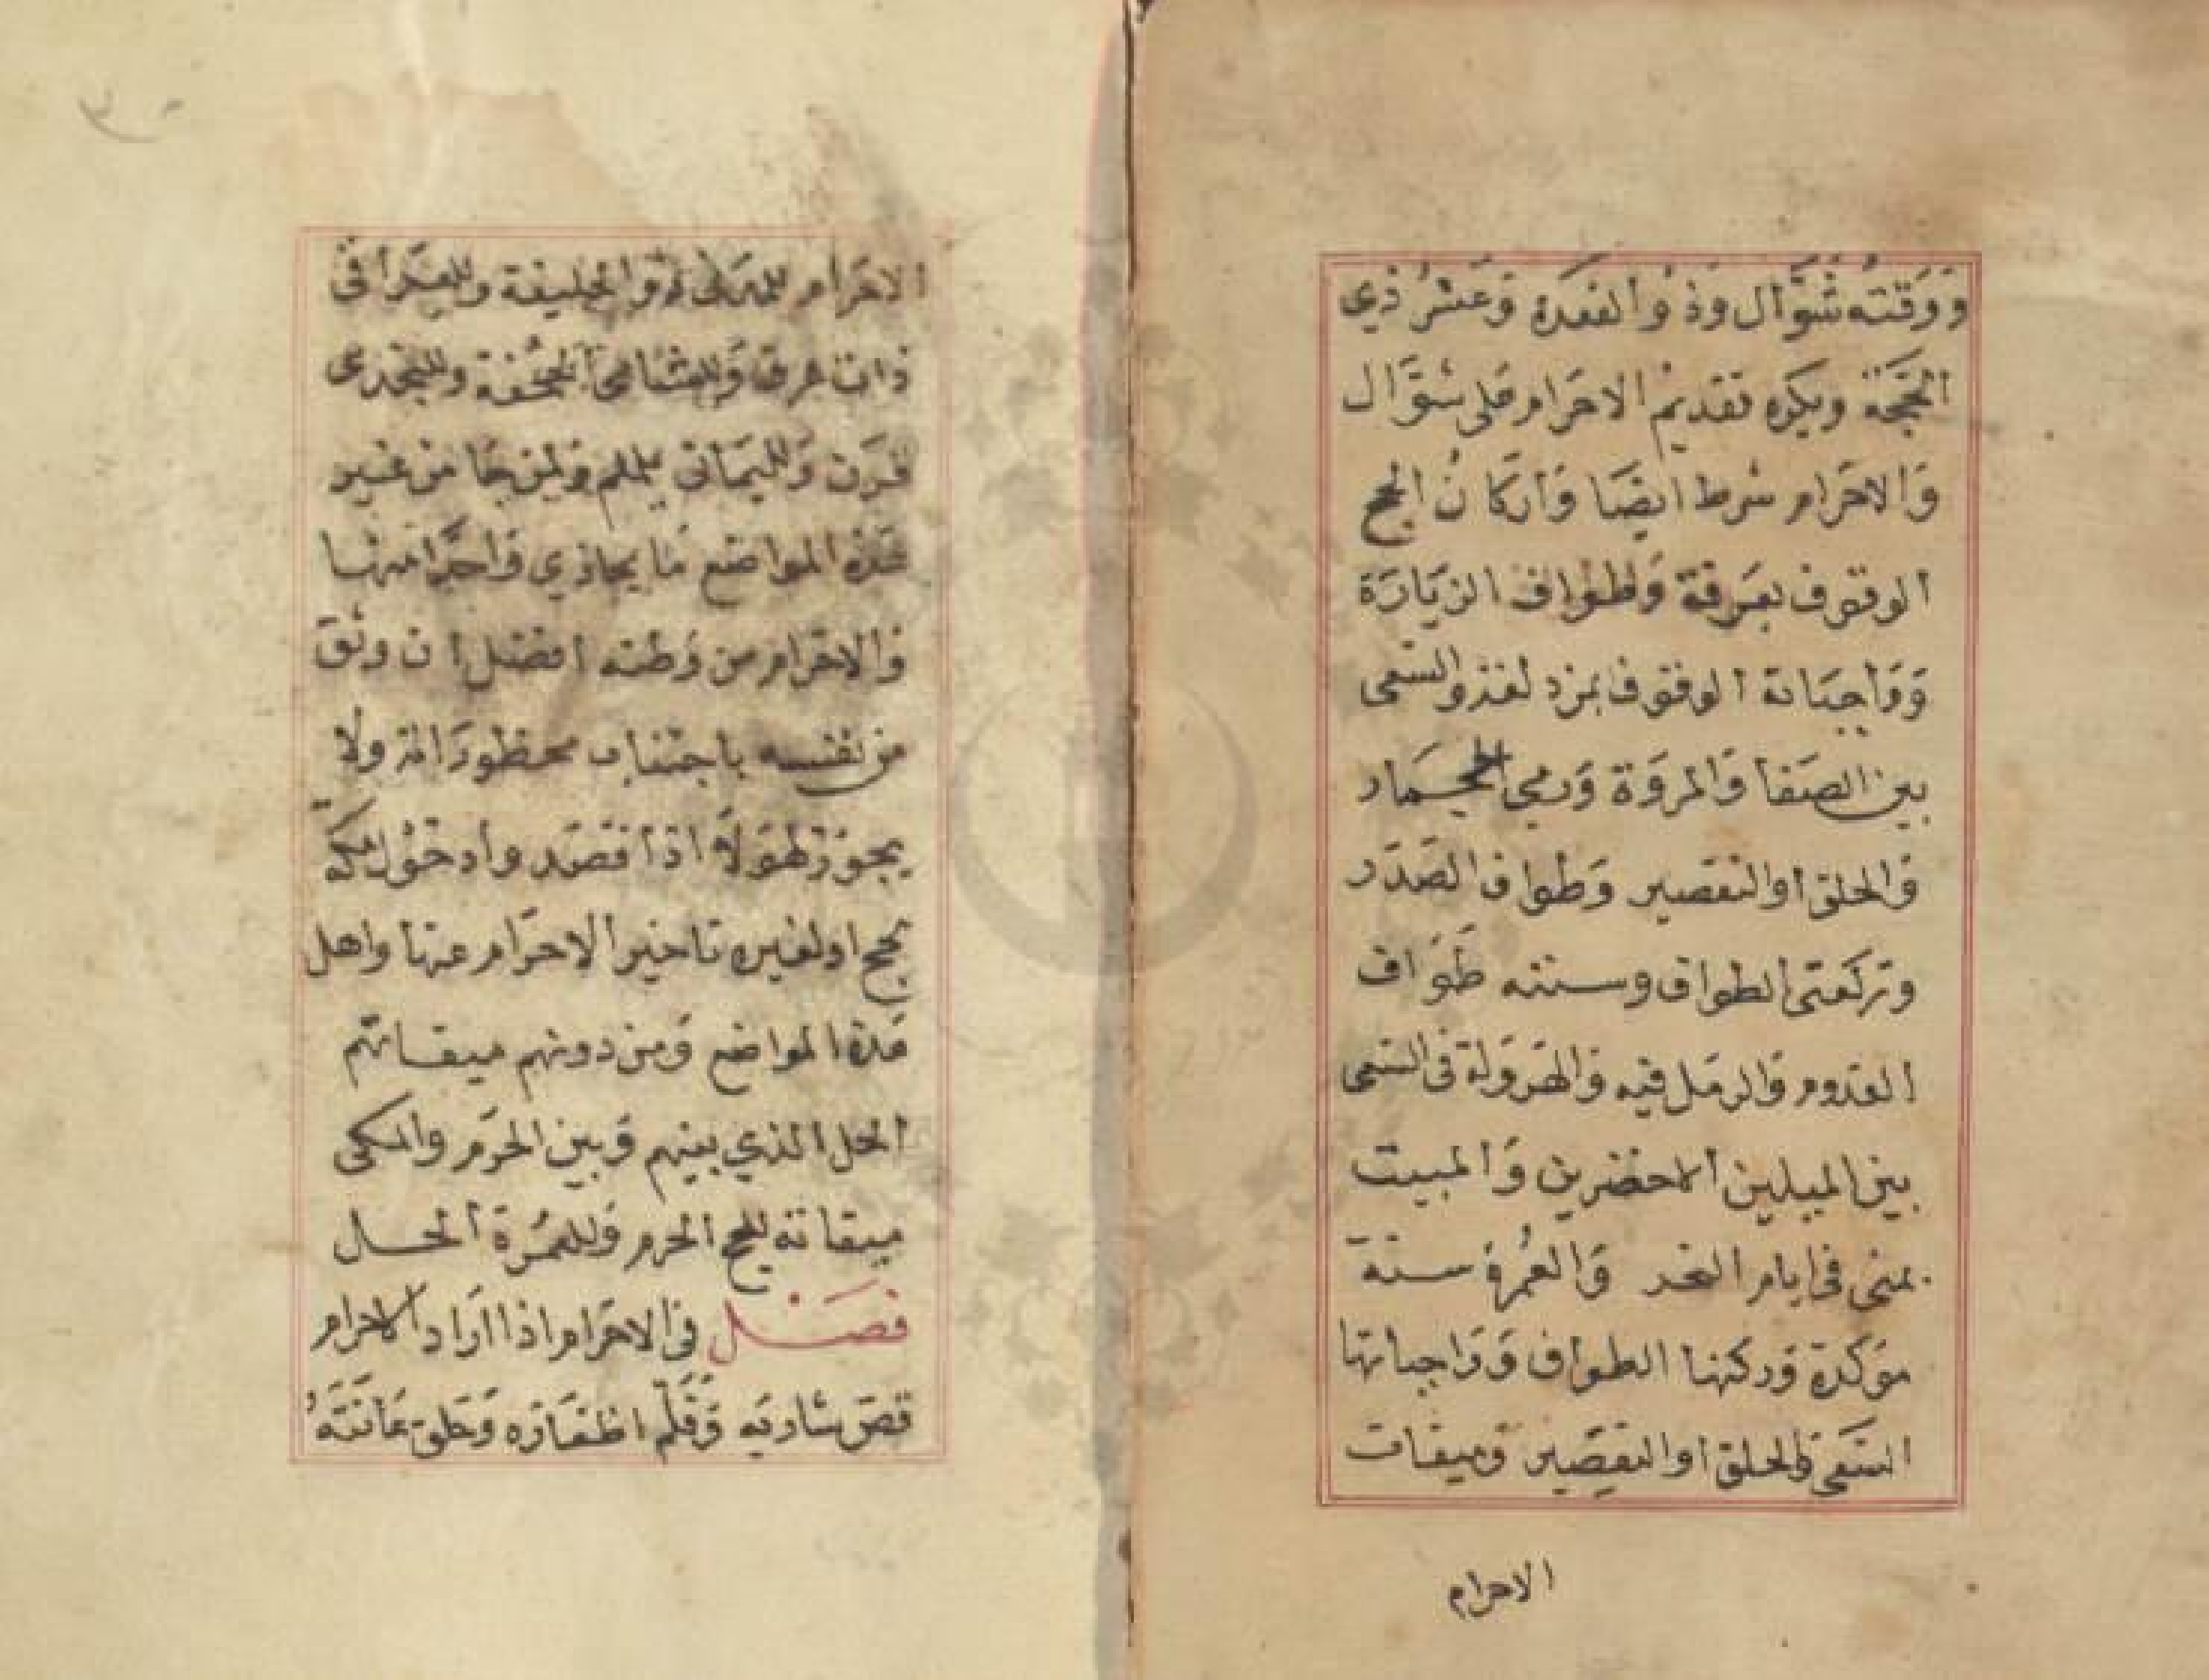 وَوَقتُه شَوَّال وَذُو القعَدة وَعَشرُ ذي
الحَجّة ويكره تقديم الاحرَام عَلى شوّال
وَالاحرَام شرط ايضَا وَاركَان الحج
الوقوف بعَرفة وَطواف الزيَارَة
وَوَاجبَاته الوقوف بمزدلفة والسّعى
بين الصَفا وَالمروَة وَرمي الجمَار
وَالحلق او التقصير وَطواف الصَدَر
وَركعَتى الطواف وسننه طَوَاف
القدوم وَالرمَل فيه وَالهَروَلة فى السّعى
بين الميلين الاخضرين وَالمبيت
بمنى فى ايام النحر وَالعُمرة سنة
موَكدة وَركنها الطواف وَوَاجباتها
السّعى وَالحلق او التقصير وَميقات
الاحرام
الاحرَام للمدَنى ذو الحليفة وللعِرَاقى
ذات عرق وَللشامى الجحُفة وللنجدى
قرَن وَلليمَانى يلملم وَلمن جَا من غير
هَذه المواضع مَا يحاذي وَاحِدًا منها
وَالاحرَام من وَطنه افضل ان وثق
من نفسه باجتناب محظورَاته ولا
يجوز لهَولَاء اذا قصَدوا دخول مكّة
بحج او لغيره تاخير الاحرَام عنها واهل
هَذه المواضع وَمن دونهم ميقاتهم
الحل الذي بينهم وَبين الحرَم والمكى
ميقاته للحج الحرم وَللعُمرة الحل
فصَل فى الاحرَام اذا ارَاد الاحرام
قصّ شاربَه وَقَلّم اظفَارَه وَحلق عَانَتَهُ